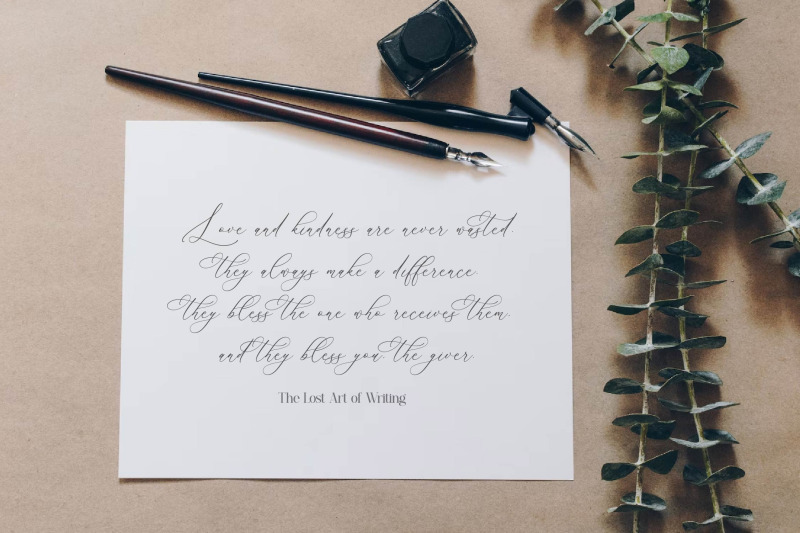 Love and kindness are never wasted.
they always make a difference.
they bless the one who receives them.
and they bless you, the giver.
The Lost Art of Writing